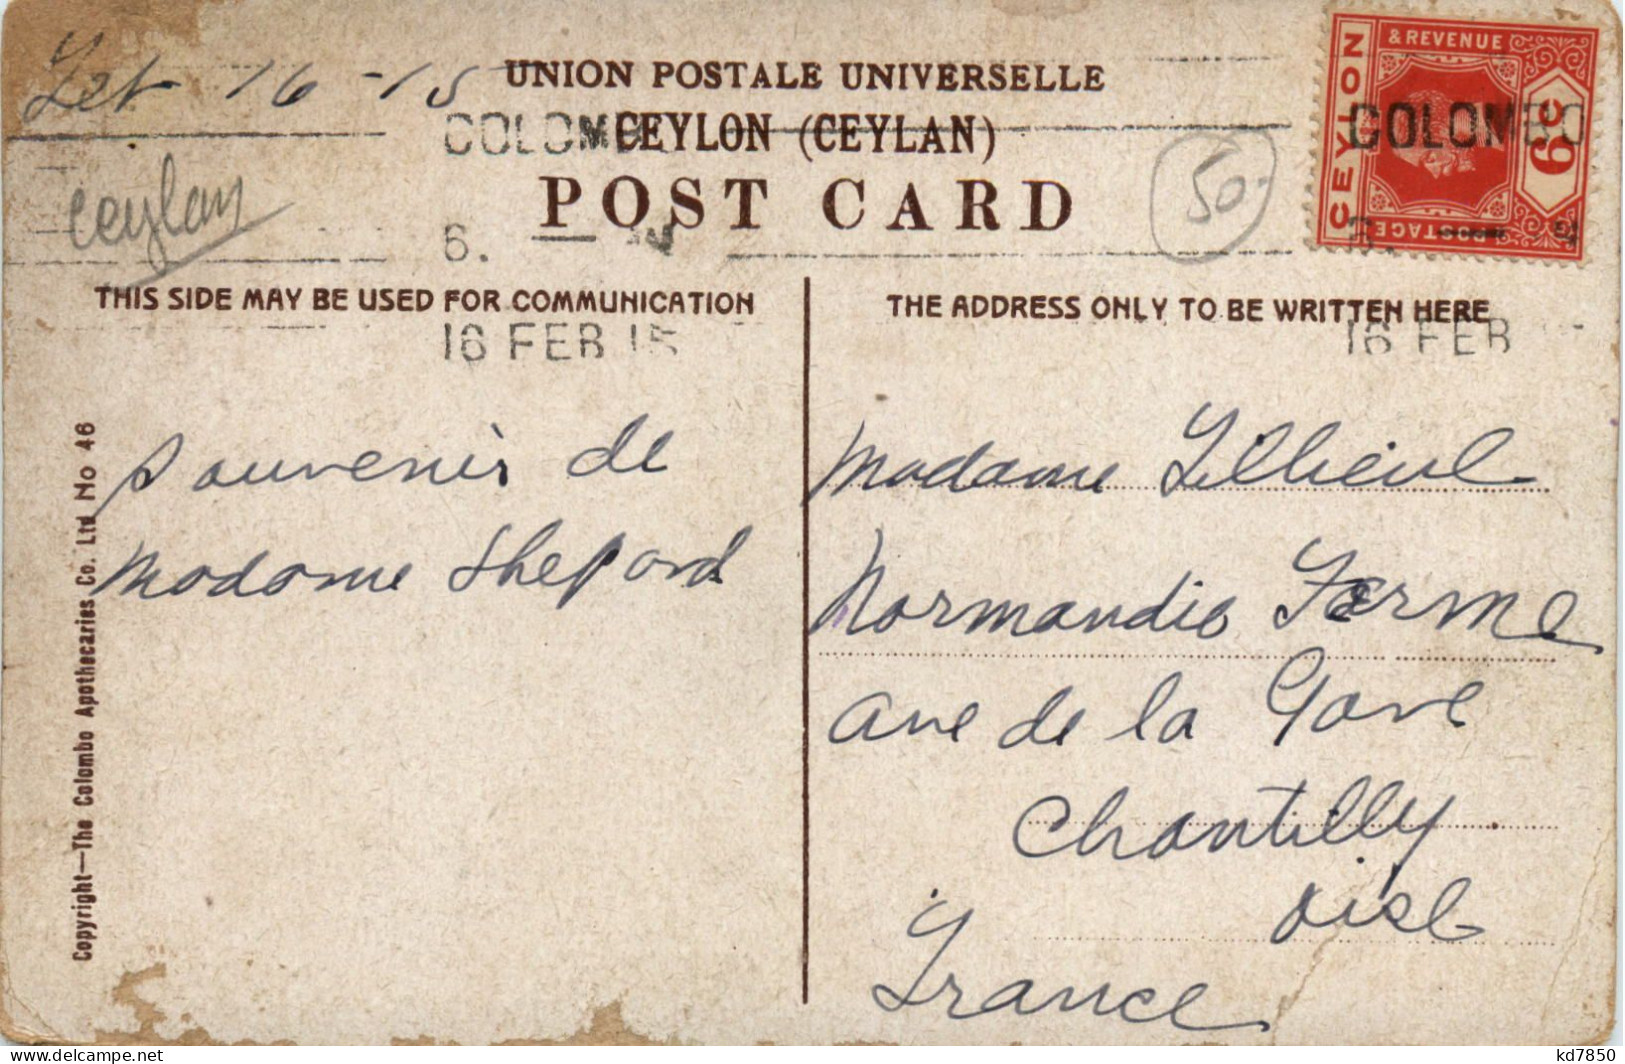 Feb 16 - 15
UNION POSTALE UNIVERSELLE
CEYLON (CEYLAN)
POST CARD
Ceylan
50.
COLOMBO
6.
16 FEB 15
CEYLON
& REVENUE
POSTAGE
6 CS
COLOMBO
6.
16 FEB
THIS SIDE MAY BE USED FOR COMMUNICATION
THE ADDRESS ONLY TO BE WRITTEN HERE
Copyright—The Colombo Apothecaries Co. Ltd No 46
Souvenir de
Madame Shepard
Madame
Normandie Ferme
Ave de la Gare
Chantilly
Oise
France
kd7850